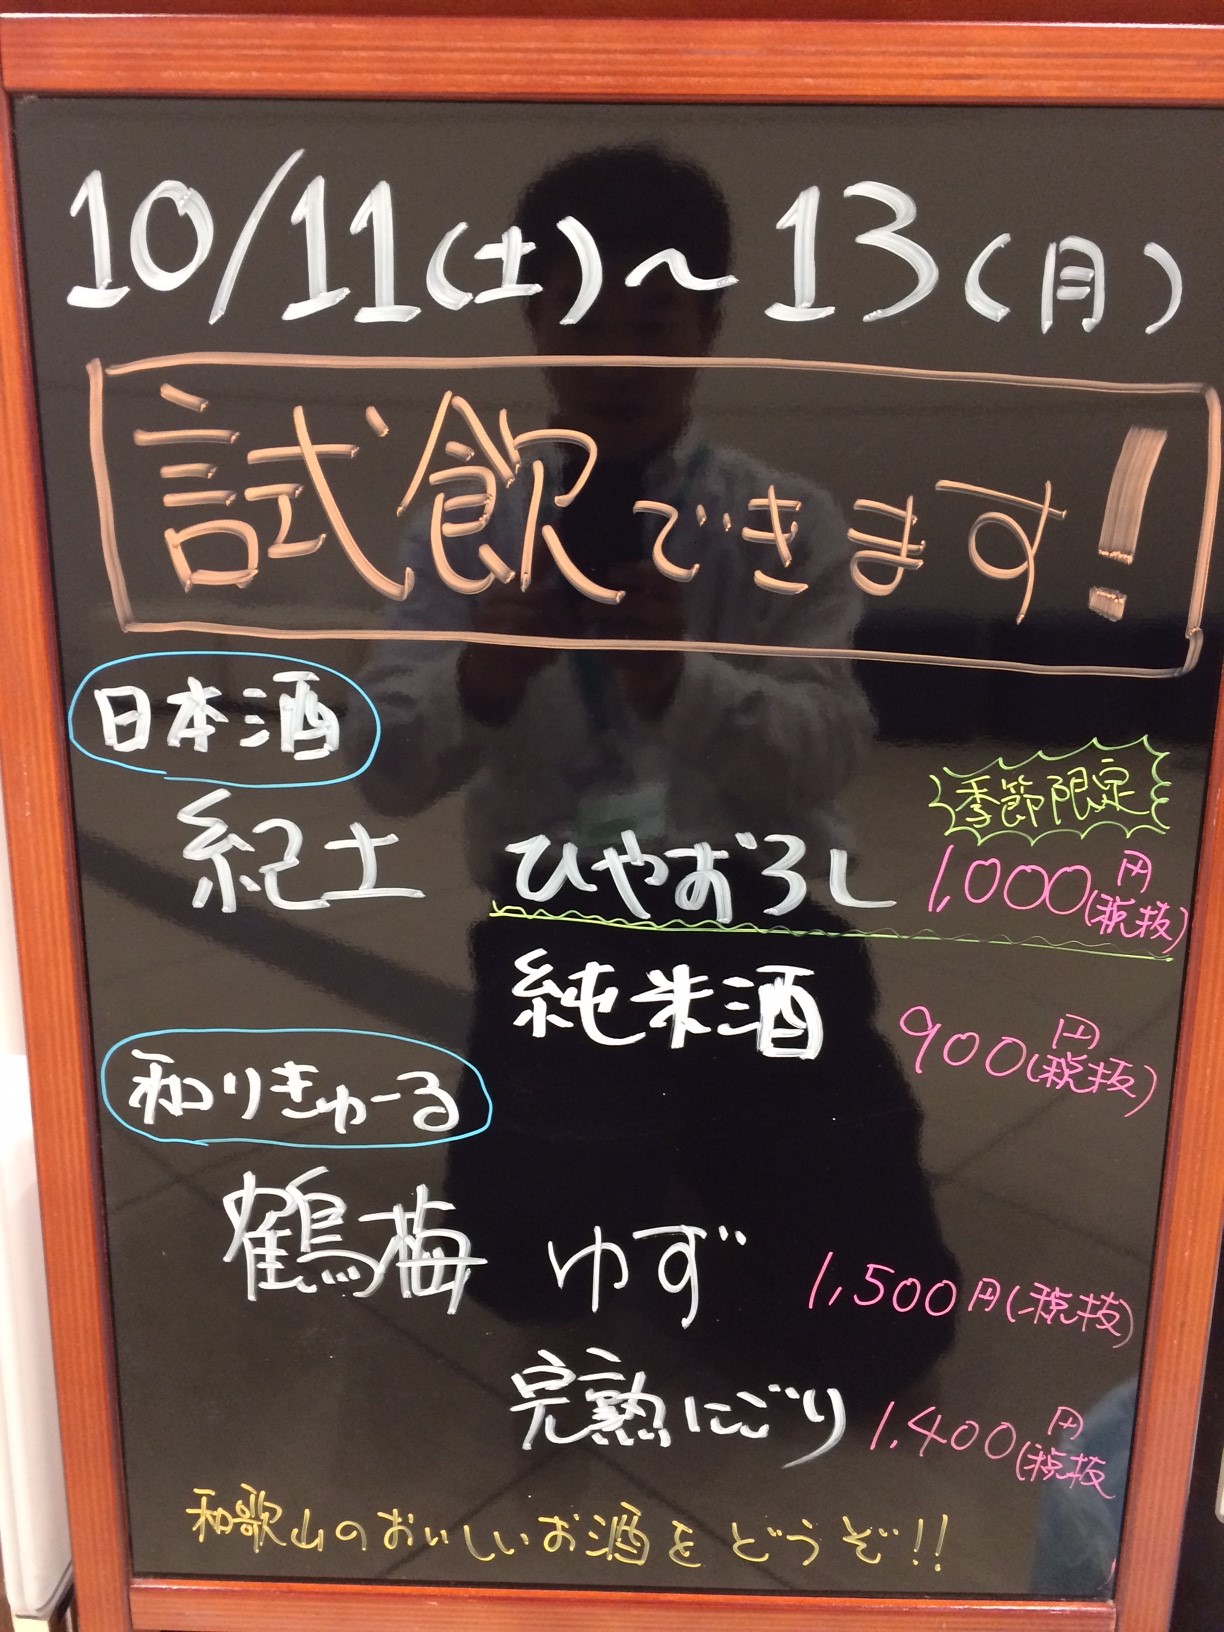 10/11(土)～13(月)
試飲できます!
日本酒
季節限定
紀土 ひやおろし 1,000円(税抜)
純米酒 900円(税抜)
和りきゅーる
鶴梅 ゆず 1,500円(税抜)
完熟にごり 1,400円(税抜
和歌山のおいしいお酒をどうぞ!!